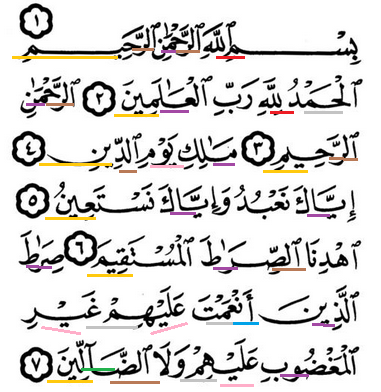 بِسْمِ ٱللَّهِ ٱلرَّحْمَٰنِ ٱلرَّحِيمِ ١
ٱلْحَمْدُ لِلَّهِ رَبِّ ٱلْعَٰلَمِينَ ٢ ٱلرَّحْمَٰنِ
ٱلرَّحِيمِ ٣ مَٰلِكِ يَوْمِ ٱلدِّينِ ٤
إِيَّاكَ نَعْبُدُ وَإِيَّاكَ نَسْتَعِينُ ٥
ٱهْدِنَا ٱلصِّرَٰطَ ٱلْمُسْتَقِيمَ ٦ صِرَٰطَ
ٱلَّذِينَ أَنْعَمْتَ عَلَيْهِمْ غَيْرِ
ٱلْمَغْضُوبِ عَلَيْهِمْ وَلَا ٱلضَّآلِّينَ ٧